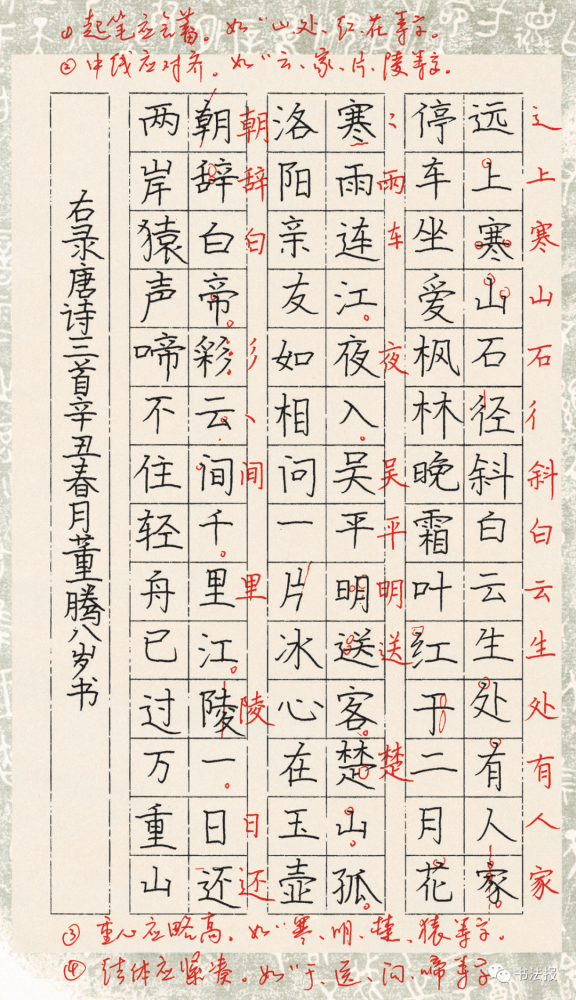 ① 起笔应含蓄。如“山、处、红、花”等字。
② 中线应对齐。如“云、家、片、陵”等字。
辶上寒山石彳斜白云生处有人家
远上寒山石径斜白云生处有人家
停车坐爱枫林晚霜叶红于二月花
雨车夜吴平明送楚
寒雨连江夜入吴平明送客楚山孤
洛阳亲友如相问一片冰心在玉壶
朝辞白彡丶间里陵日还
朝辞白帝彩云间千里江陵一日还
两岸猿声啼不住轻舟已过万重山
右录唐诗三首辛丑春月董腾八岁书
③ 重心应略高。如“寒、明、楚、猿”等字。
④ 结体应紧凑。如“于、送、问、啼”等字
书法报